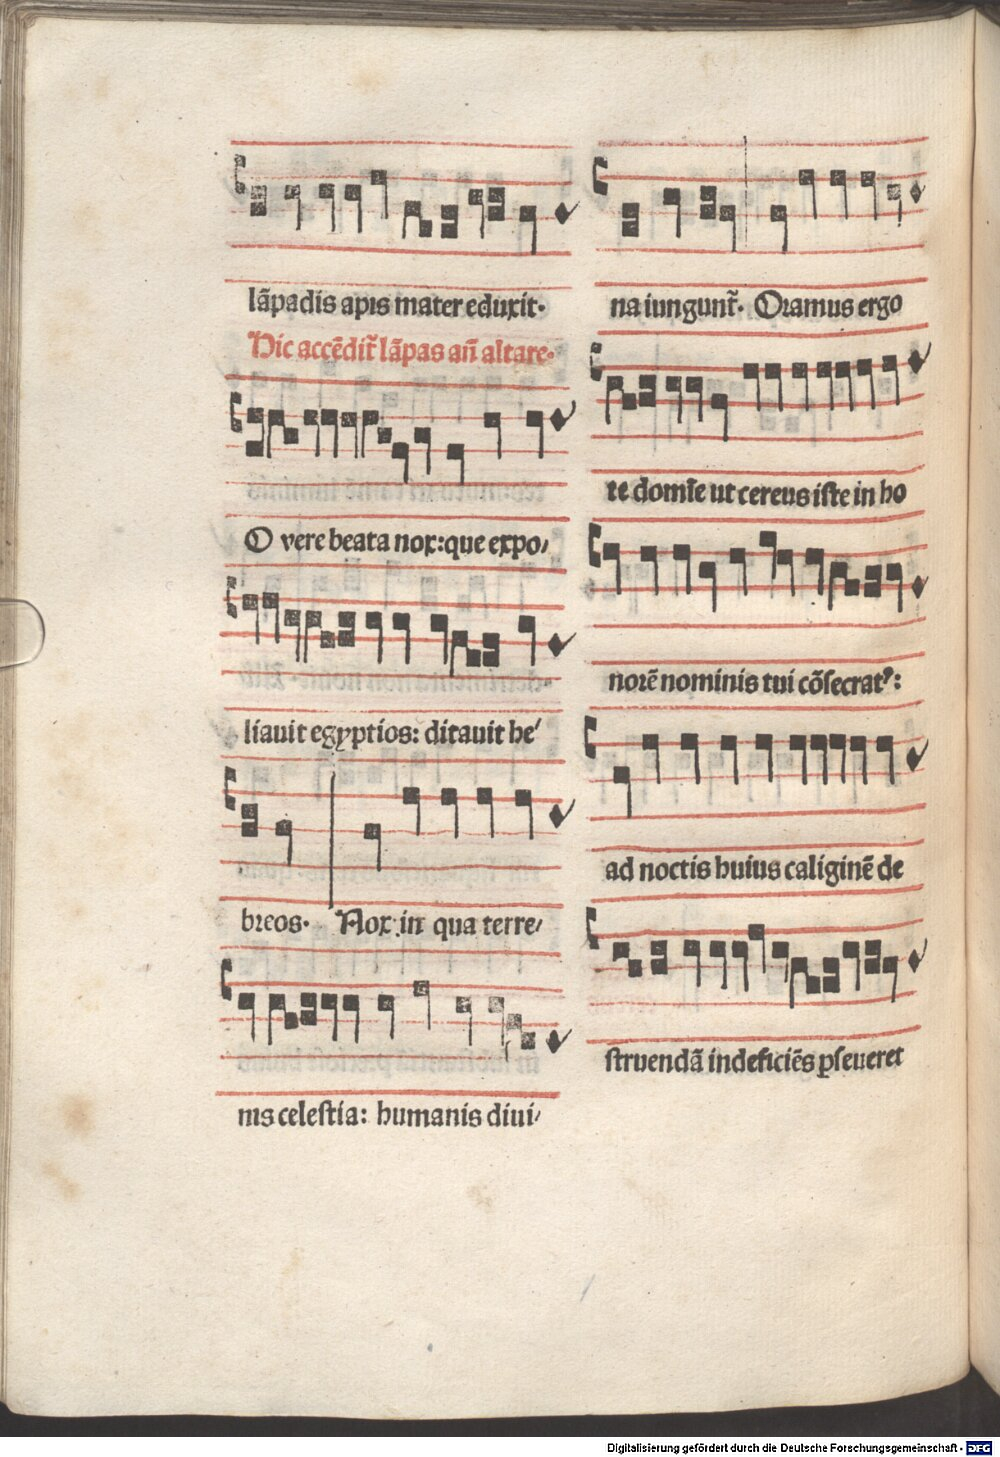 lãpadis apis mater eduxit·
Hic accẽdit̃ lãpas añ altare·
O vere beata nox: que expo/
liauit egyptios: ditauit he/
breos· Nox in qua terre/
nis celestia: humanis diui/
na iungunt̃· Oramus ergo
te domĩe ut cereus iste in ho
norẽ nominis tui cõsecratꝰ:
ad noctis huius caliginẽ de
struendã indeficiẽs ꝑseueret
Digitalisierung gefördert durch die Deutsche Forschungsgemeinschaft - DFG